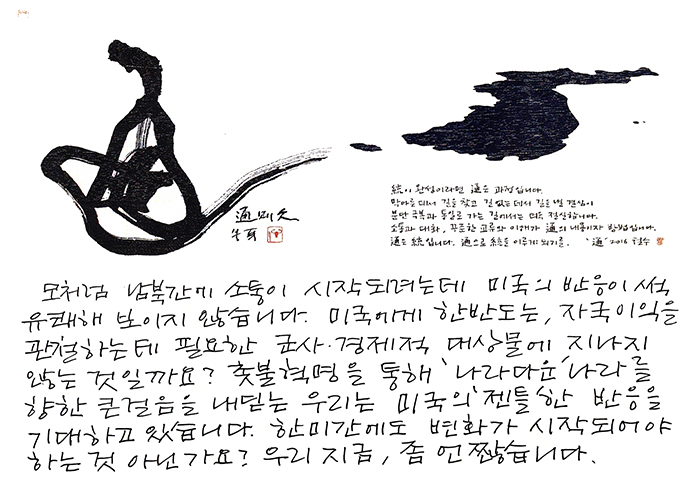 通則久
統이 완성이라면 通은 과정입니다.
막힌 데서 길을 찾고 길 없는 데서 길을 낼 결심이
분단 극복과 통일로 가는 길에서는 더욱 절실합니다.
소통과 대화, 꾸준한 교류와 이해가 通의 내용이자 방법입니다.
通은 統입니다. 通으로 統을 이루게 되기를. '通' 2016 철수
모처럼 남북간에 소통이 시작되려는데 미국의 반응이 썩
유쾌해 보이지 않습니다. 미국에게 한반도는, 자국이익을
관철하는데 필요한 군사·경제적 대상물에 지나지
않는 것일까요? 촛불혁명을 통해 '나라다운' 나라를
향한 큰걸음을 내딛는 우리는 미국의 '젠틀'한 반응을
기대하고 있습니다. 한미간에도 변화가 시작되어야
하는것 아닌가요? 우리 지금, 좀 언짢습니다.